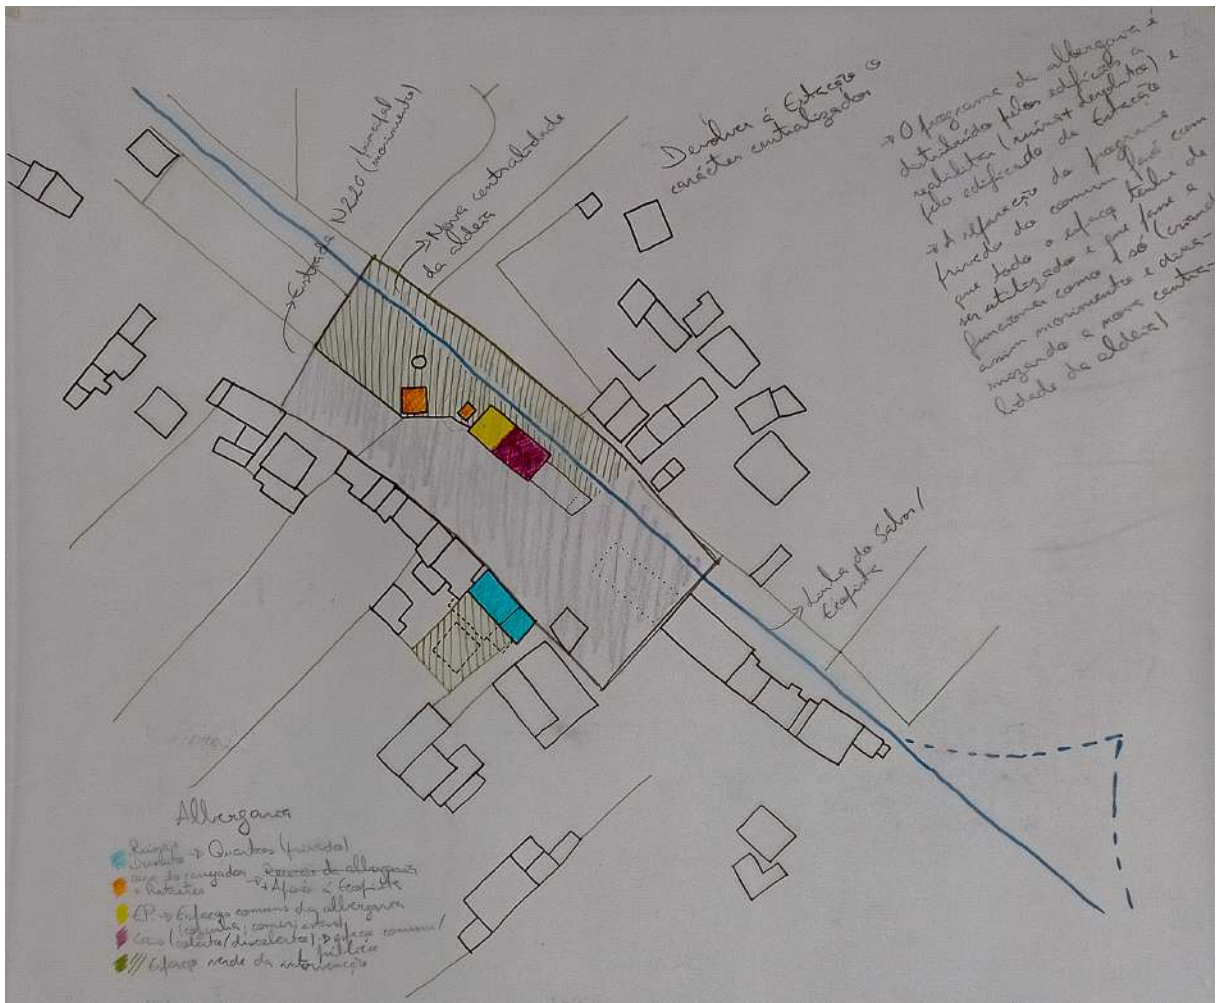 → Estrada N220 (principal
movimento)
→ Nova centralidade
da aldeia
Devolver à Estação o
carácter centralizador
→ O programa da albergaria é
distribuido pelos edificios a
reabilitar (ruinas + devolutos) e
pelo edificado da Estação
→ A separação do programa
privado do comum faz com
que todo o espaço tenha de
ser utilizado e que passe a
funcionar como 1 só (criando
assim movimento e dina-
mizando a nova centra-
lidade da aldeia)
→ Linha do Sabor/
Ecopista
Albergaria
Ruinas
Devoluto → Quartos (privado)
casa do carregador → Receção da albergaria
+ Retretes → Apoio à Ecopista
E.P. → Espaços comuns da albergaria
(cozinha; comer; estar)
Cais (coberto/descoberto) → espaço comum/
público
/// Espaço verde da intervenção